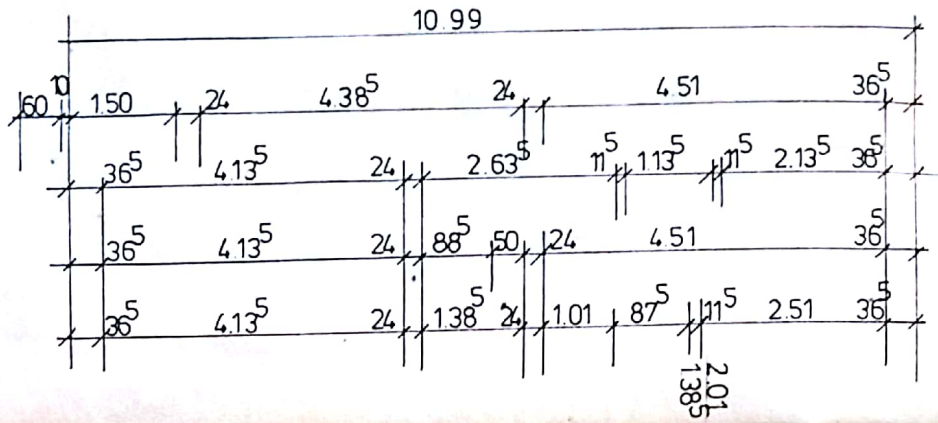 10.99
60 10 1.50 24 4.38⁵ 24 4.51 36⁵
36⁵ 4.13⁵ 24 2.63⁵ 11⁵ 1.13⁵ 11⁵ 2.13⁵ 36⁵
36⁵ 4.13⁵ 24 88⁵ 50 24 4.51 36⁵
36⁵ 4.13⁵ 24 1.38⁵ 24 1.01 87⁵ 11⁵ 2.51 36⁵
2.01
1.38⁵